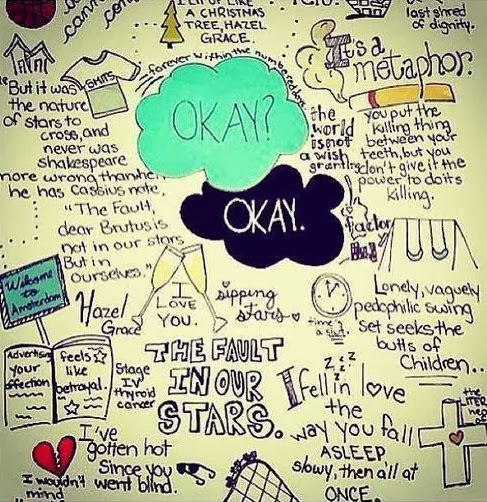 LIT UP LIKE
A CHRISTMAS
TREE, HAZEL
GRACE.
last shred
of dignity.
It's a
metaphor.
"But it was
the nature
of stars to
cross, and
never was
shakespeare
more wrong than when
he has Cassius note,
"The Fault,
dear Brutus is
not in our stars
But in
ourselves."
SHITS
forever within the numbered days
OKAY?
OKAY.
the
world
is not
a wish
granting
factory
you put the
killing thing
between your
teeth, but you
don't give it the
power to do its
killing.
Welcome
to
Amsterdam
Hazel
Grace
I
LOVE
YOU.
sipping
stars
time's
a slut
Lonely, vaguely
pedophilic swing
set seeks the
butts of
Children..
Advertising
your
affection
feels
like
betrayal.
Stage
IV
thyroid
cancer
THE FAULT
IN OUR
STARS.
zzzz
I fell in love
the
way you fall
ASLEEP
slowy, then all at
ONCE
the
LITER
I've
gotten hot
Since you
went blind.
I wouldn't
mind